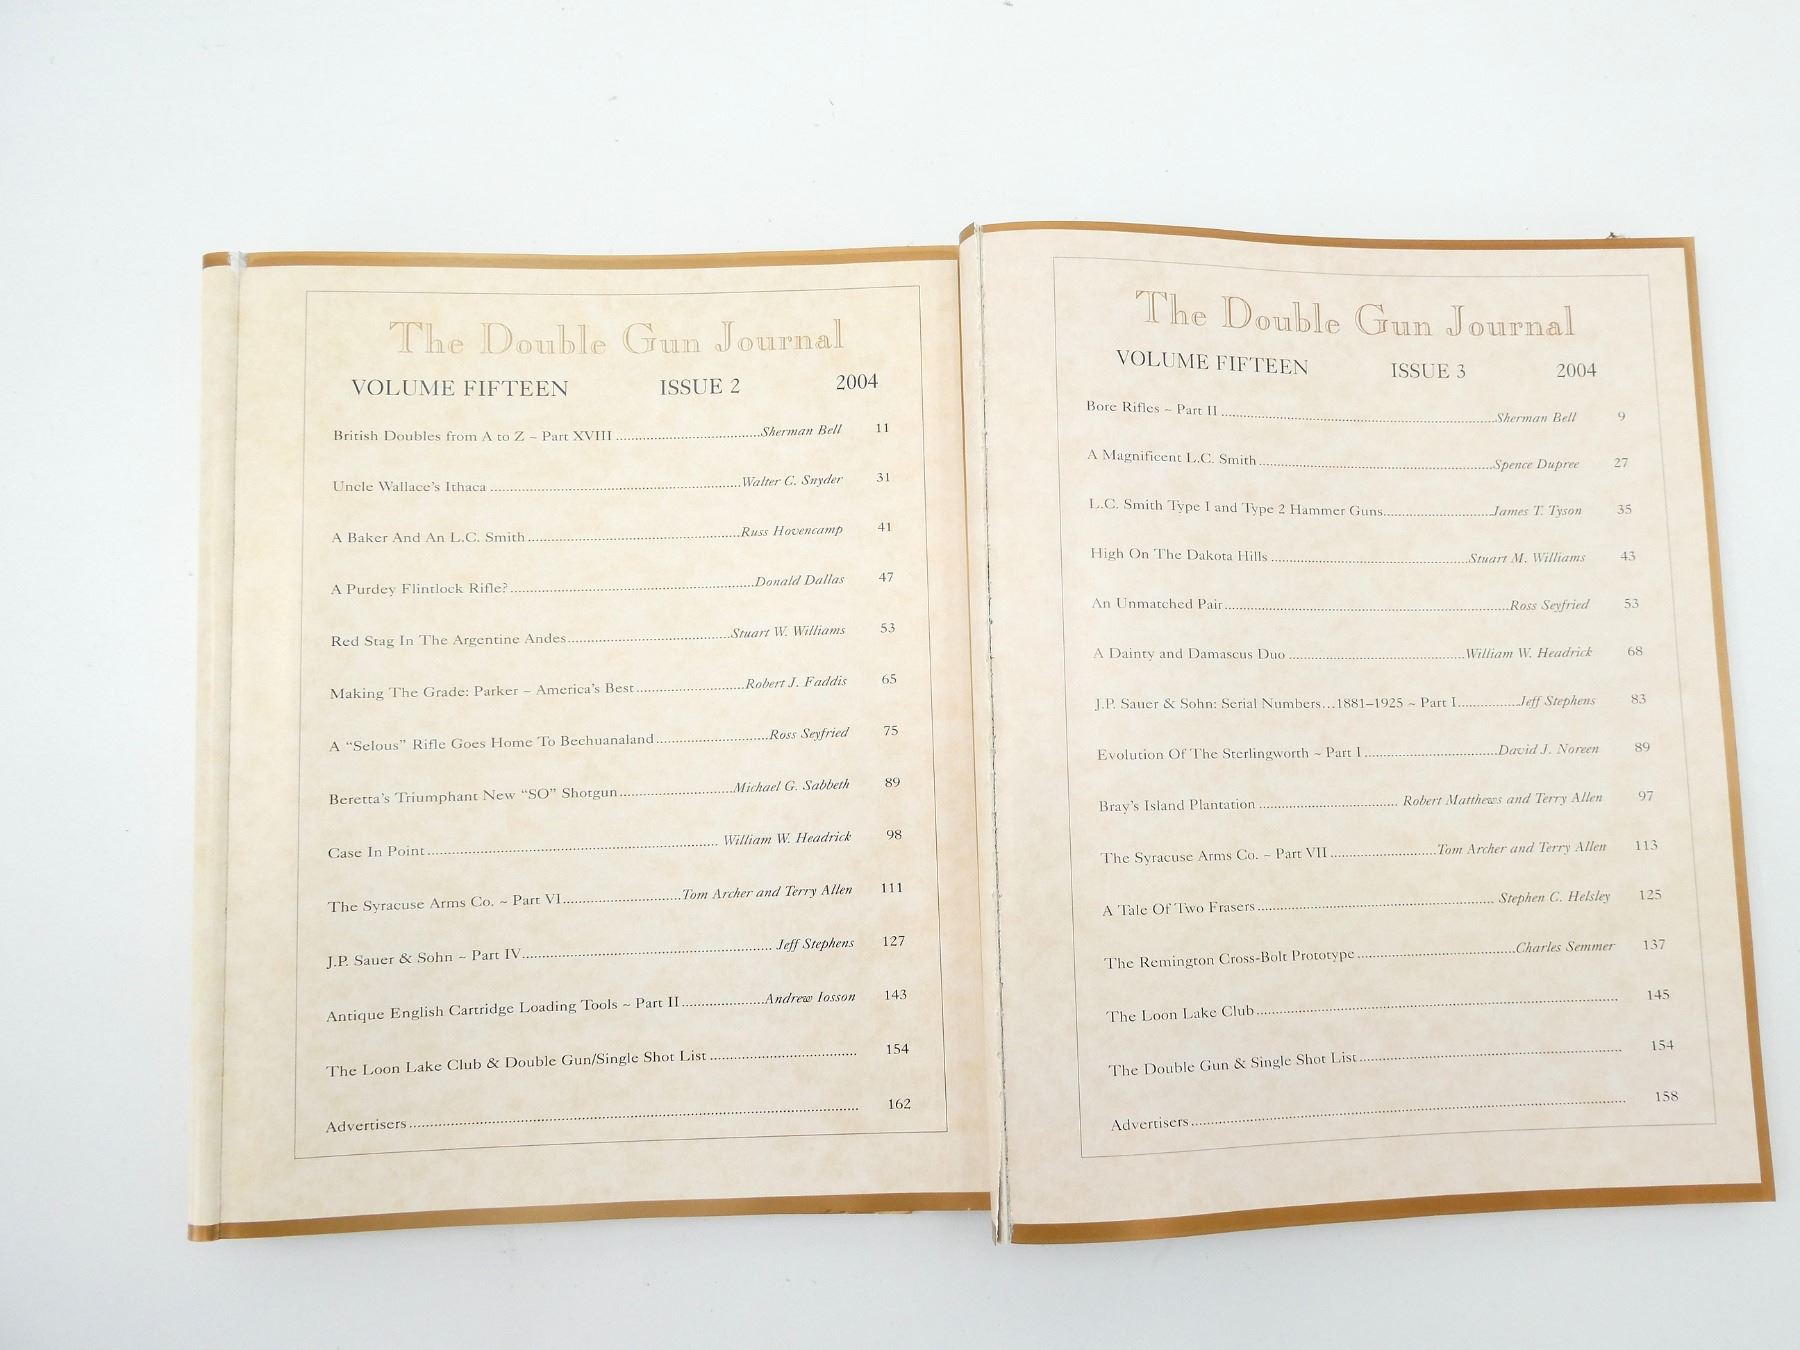 The Double Gun Journal
VOLUME FIFTEEN ISSUE 2 2004
British Doubles from A to Z ~ Part XVIII Sherman Bell 11
Uncle Wallace's Ithaca Walter C. Snyder 31
A Baker And An L.C. Smith Russ Hovencamp 41
A Purdey Flintlock Rifle? Donald Dallas 47
Red Stag In The Argentine Andes Stuart W. Williams 53
Making The Grade: Parker ~ America's Best Robert J. Faddis 65
A "Selous" Rifle Goes Home To Bechuanaland Ross Seyfried 75
Beretta's Triumphant New "SO" Shotgun Michael G. Sabbeth 89
Case In Point William W. Headrick 98
The Syracuse Arms Co. ~ Part VI Tom Archer and Terry Allen 111
J.P. Sauer & Sohn ~ Part IV Jeff Stephens 127
Antique English Cartridge Loading Tools ~ Part II Andrew Iosson 143
The Loon Lake Club & Double Gun/Single Shot List 154
Advertisers 162
The Double Gun Journal
VOLUME FIFTEEN ISSUE 3 2004
Bore Rifles ~ Part II Sherman Bell 9
A Magnificent L.C. Smith Spence Dupree 27
L.C. Smith Type I and Type 2 Hammer Guns James T. Tyson 35
High On The Dakota Hills Stuart M. Williams 43
An Unmatched Pair Ross Seyfried 53
A Dainty and Damascus Duo William W. Headrick 68
J.P. Sauer & Sohn: Serial Numbers...1881–1925 ~ Part I Jeff Stephens 83
Evolution Of The Sterlingworth ~ Part I David J. Noreen 89
Bray's Island Plantation Robert Matthews and Terry Allen 97
The Syracuse Arms Co. ~ Part VII Tom Archer and Terry Allen 113
A Tale Of Two Frasers Stephen C. Helsley 125
The Remington Cross-Bolt Prototype Charles Semmer 137
The Loon Lake Club 145
The Double Gun & Single Shot List 154
Advertisers 158